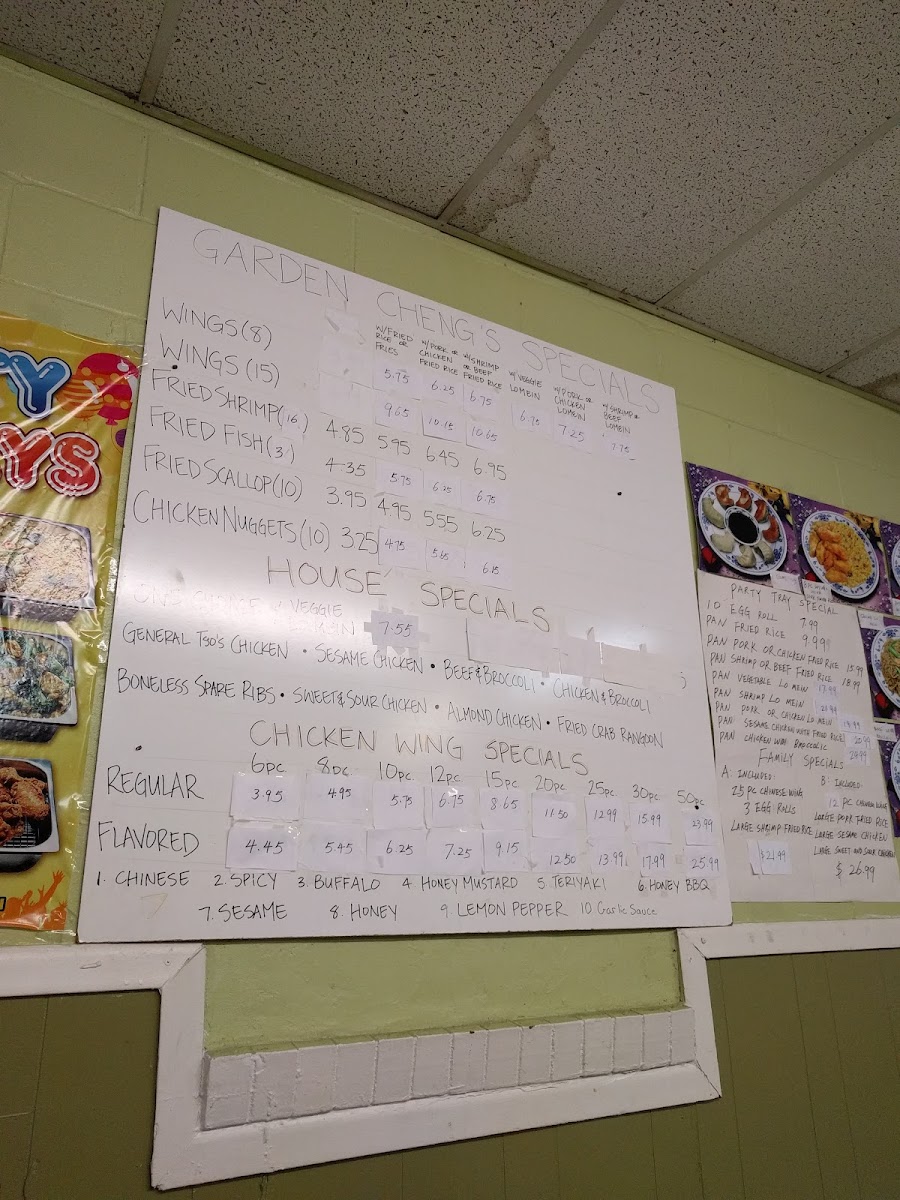 GARDEN CHENG'S SPECIALS
W/FRIED RICE OR FRIES
W/PORK OR CHICKEN FRIED RICE
W/SHRIMP OR BEEF FRIED RICE
W/VEGGIE LOMEIN
W/PORK OR CHICKEN LOMEIN
W/SHRIMP OR BEEF LOMEIN
WINGS (8) 5.75 6.25 6.75 6.75 7.25 7.75
WINGS (15) 9.65 10.15 10.65
FRIED SHRIMP (16) 4.85 5.95 6.45 6.95
FRIED FISH (3) 4.35 5.75 6.25 6.75
FRIED SCALLOP (10) 3.95 4.95 5.55 6.25
CHICKEN NUGGETS (10) 3.25 4.75 5.65 6.15
HOUSE SPECIALS
VEGGIE
7.55
GENERAL TSO'S CHICKEN • SESAME CHICKEN • BEEF & BROCCOLI • CHICKEN & BROCCOLI
BONELESS SPARE RIBS • SWEET & SOUR CHICKEN • ALMOND CHICKEN • FRIED CRAB RANGOON
CHICKEN WING SPECIALS
6pc 8pc 10pc 12pc 15pc 20pc 25pc 30pc 50pc
REGULAR 3.95 4.95 5.75 6.75 8.65 11.50 12.99 15.99 23.99
FLAVORED 4.45 5.45 6.25 7.25 9.15 12.50 13.99 17.99 25.99
1. CHINESE 2. SPICY 3. BUFFALO 4 HONEY MUSTARD 5 TERIYAKI 6. HONEY BBQ
7. SESAME 8. HONEY 9. LEMON PEPPER 10 Garlic Sauce
PARTY TRAY SPECIAL
10 EGG ROLL 7.99
PAN FRIED RICE 9.99
PAN PORK OR CHICKEN FRIED RICE 15.99
PAN SHRIMP OR BEEF FRIED RICE 18.99
PAN VEGETABLE LO MEIN 17.99
PAN SHRIMP LO MEIN
PAN PORK OR CHICKEN LO MEIN
PAN SESAME CHICKEN WITH FRIED RICE
PAN CHICKEN WITH BROCCOLI
FAMILY SPECIALS
A. INCLUDED:
25 PC CHINESE WING
3 EGG ROLLS
LARGE SHRIMP FRIED RICE
$21.99
B. INCLUDED:
12 PC CHICKEN WING
LARGE PORK FRIED RICE
LARGE SESAME CHICKEN
LARGE SWEET AND SOUR CHICKEN
$26.99